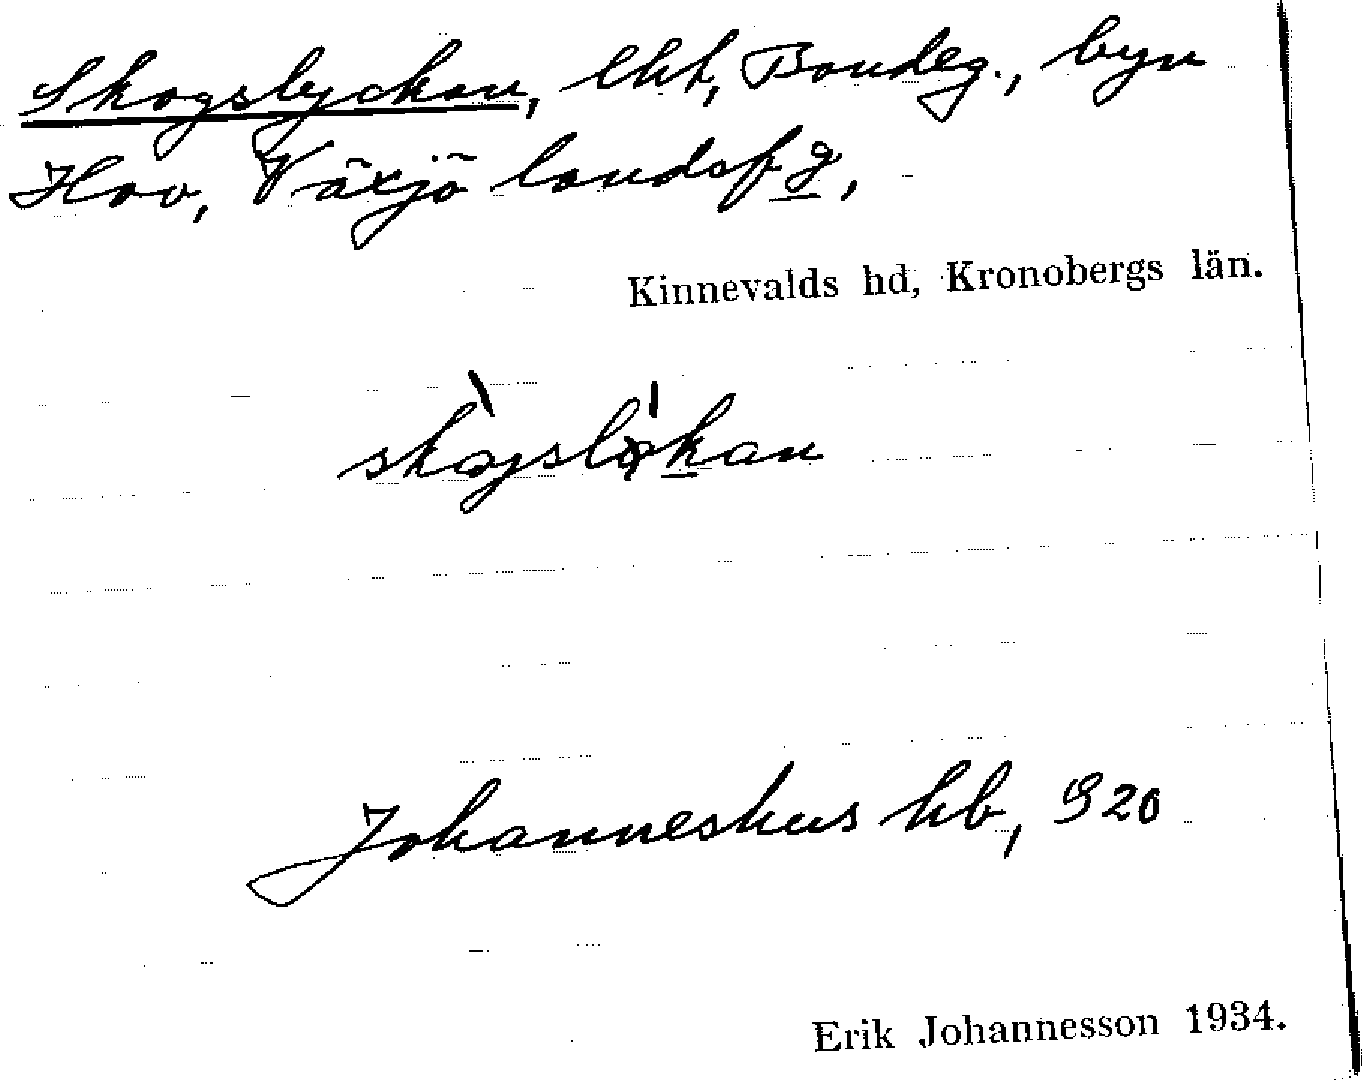 Skogslyckan, lht, Bondeg., byn
Hov, Växjö landsfg,
Kinnevalds hd, Kronobergs län.
Johanneshus hb, S20
Erik Johannesson 1934.